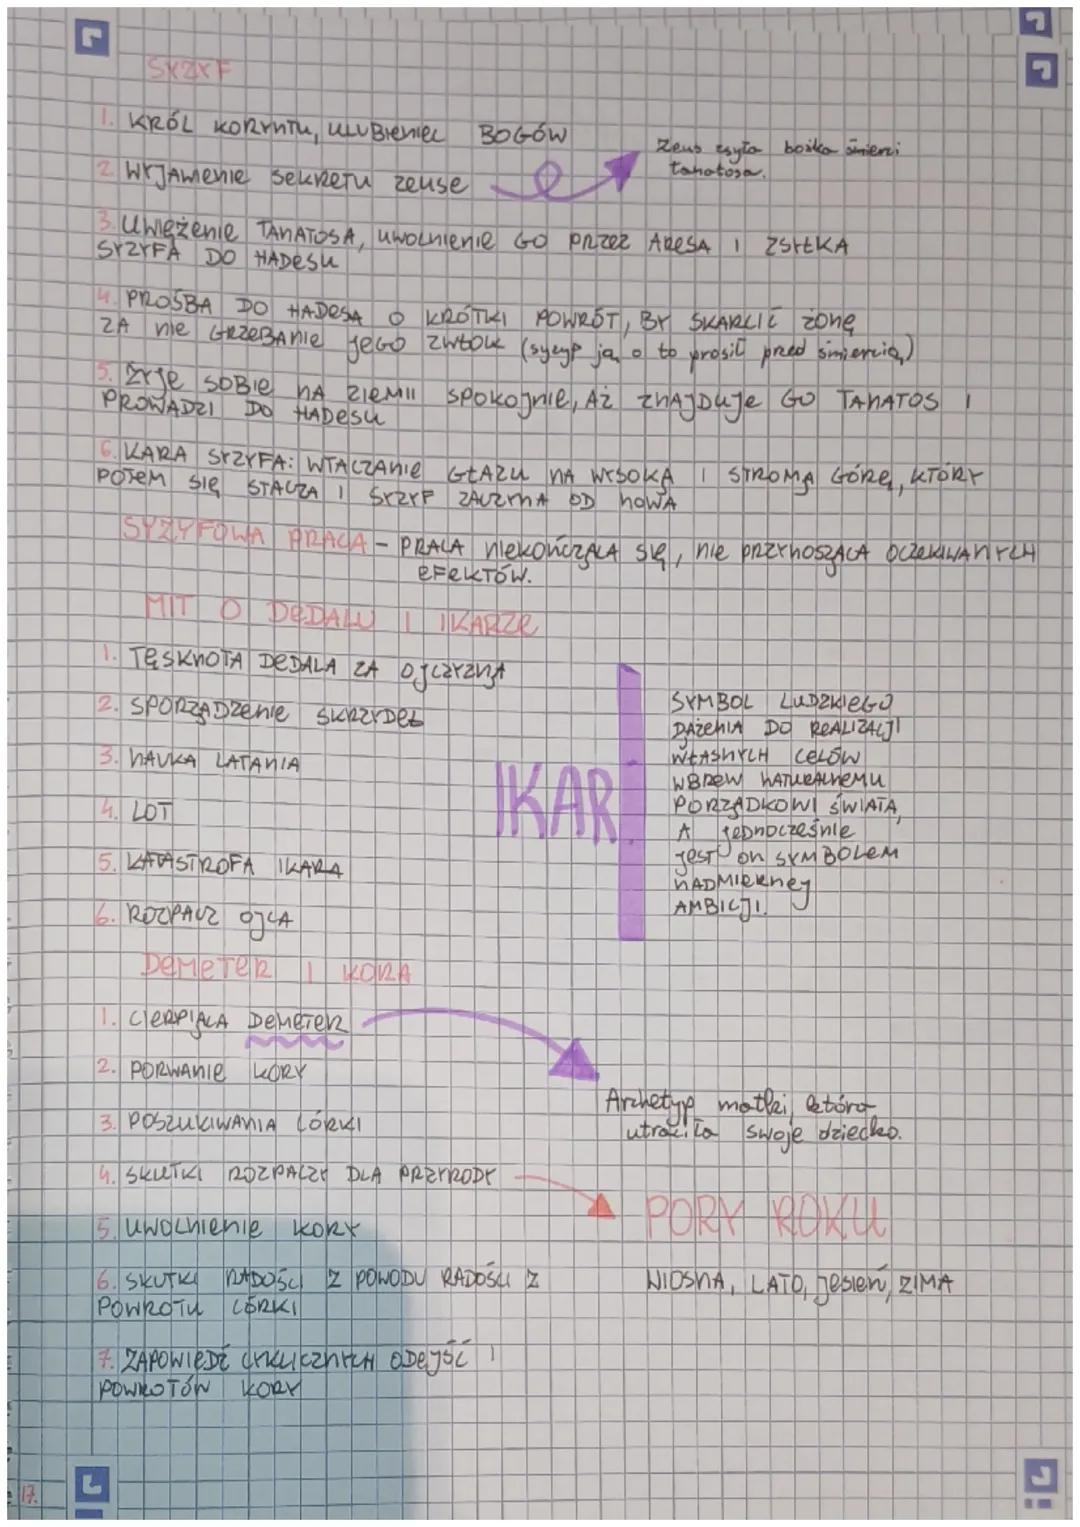 SYZYF
1. KRÓL KORYNTU, ULUBIENIEC BOGÓW
2. WYJAWIENIE SEKRETU ZEUSE
Zeus zsyła bożka śmierci
tanatosa.
3. UWIĘZENIE TANATOSA, UWOLNIENIE GO PRZEZ ARESA I ZSYŁKA
SYZYFA DO HADESU
4. PROŚBA DO HADESA O KRÓTKI POWRÓT, BY SKARCIĆ ŻONĘ
ZA NIE GRZEBANIE JEGO ZWŁOK (syzyf ją o to prosił pred śmiercią)
5. ŻYJE SOBIE NA ZIEMII SPOKOJNIE, AŻ ZNAJDUJE GO TANATOS I
PROWADZI DO HADESU
6. KARA SYZYFA: WTACZANIE GŁAZU NA WYSOKĄ I STROMĄ GÓRĘ, KTÓRY
POTEM SIĘ STACZA I SYZYF ZACZYNA OD NOWA
SYZYFOWA PRACA - PRACA NIEKOŃCZĄCA SIĘ, NIE PRZYNOSZĄCA OCZEKIWANYCH
EFEKTÓW.
MIT O DEDALU I IKARZE
1. TĘSKNOTA DEDALA ZA OJCZYZNĄ
2. SPORZĄDZENIE SKRZYDEŁ
3. NAUKA LATANIA
4. LOT
5. KATASTROFA IKARA
6. ROZPACZ OJCA
IKAR
SYMBOL LUDZKIEGO
DĄŻENIA DO REALIZACJI
WŁASNYCH CELÓW
WBREW NATURALNEMU
PORZĄDKOWI ŚWIATA,
A JEDNOCZEŚNIE
JEST ON SYMBOLEM
NADMIERNEJ
AMBICJI.
DEMETER I KORA
1. CIERPIĄCA DEMETER
2. PORWANIE KORY
3. POSZUKIWANIA CÓRKI
Archetyp matki, która
utraciła swoje dziecko.
4. SKUTKI ROZPACZY DLA PRZYRODY
PORY ROKU
5. UWOLNIENIE KORY
6. SKUTKI RADOŚCI Z POWODU RADOŚCI Z
POWROTU CÓRKI
WIOSNA, LATO, JESIEŃ, ZIMA
7. ZAPOWIEDŹ CYKLICZNYCH ODEJŚĆ I
POWROTÓW KORY
17.